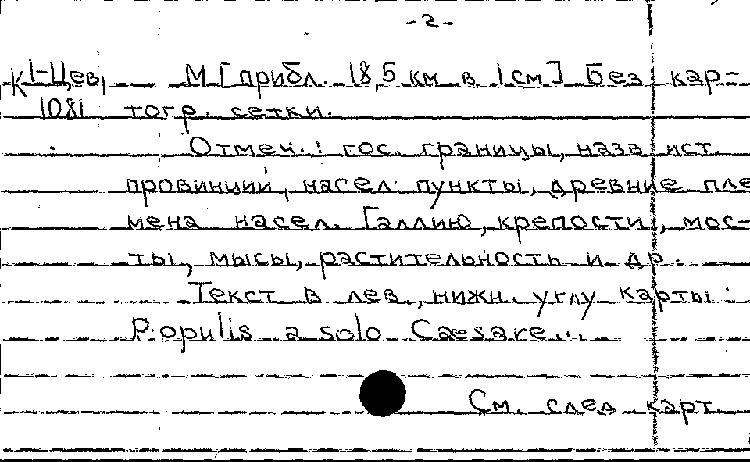 -2-
К 1-Цев, М [прибл. 18,5 км в 1 см] Без кар-
1081 тогр. сетки.
Отмеч.: гос. границы, назв ист.
провинций, насел. пункты, древние пле
мена насел. Галлию, крепости, мос-
ты, мысы, растительность и др.
Текст в лев., нижн. углу карты:
Populis a solo Caesare...
См. след карт.